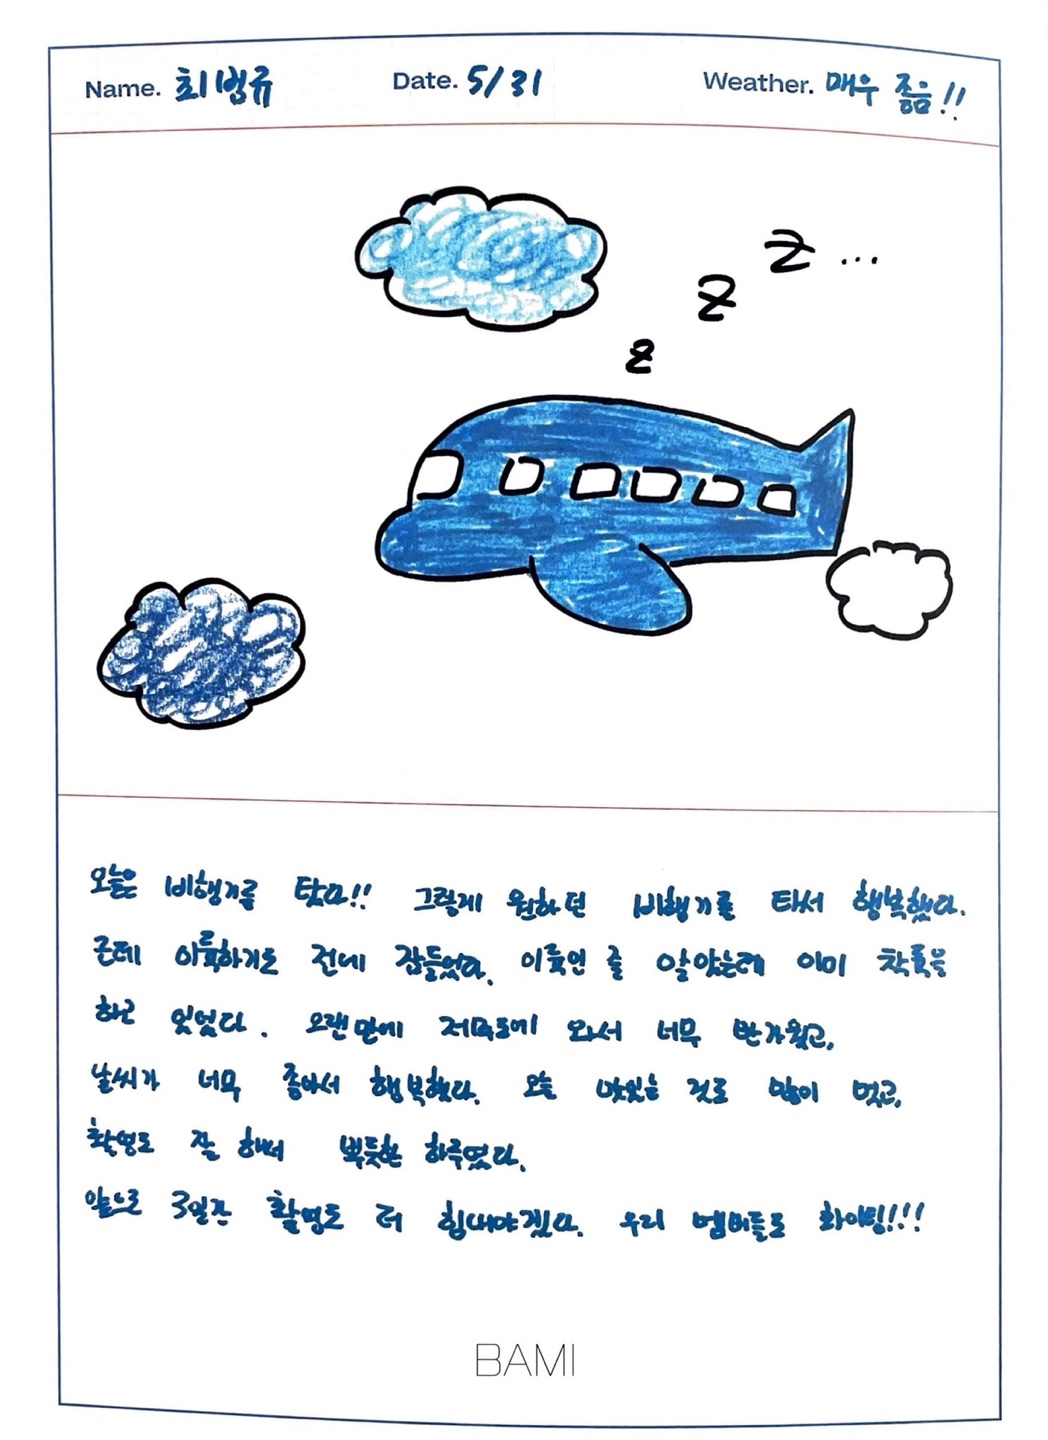 Name. 최범규 Date. 5/31 Weather. 매우 좋음!!
z z z ...
오늘은 비행기를 탔다!! 그렇게 원하던 비행기를 타서 행복했다.
근데 이륙하기도 전에 잠들었다. 이륙인 줄 알았는데 이미 착륙을
하고 있었다. 오랜만에 제주도에 와서 너무 반가웠고,
날씨가 너무 좋아서 행복했다. 오늘 맛있는 것도 많이 먹고,
촬영도 잘 해서 뿌듯한 하루였다.
앞으로 3일간 촬영도 더 힘내야겠다. 우리 멤버들도 화이팅!!!
BAMI